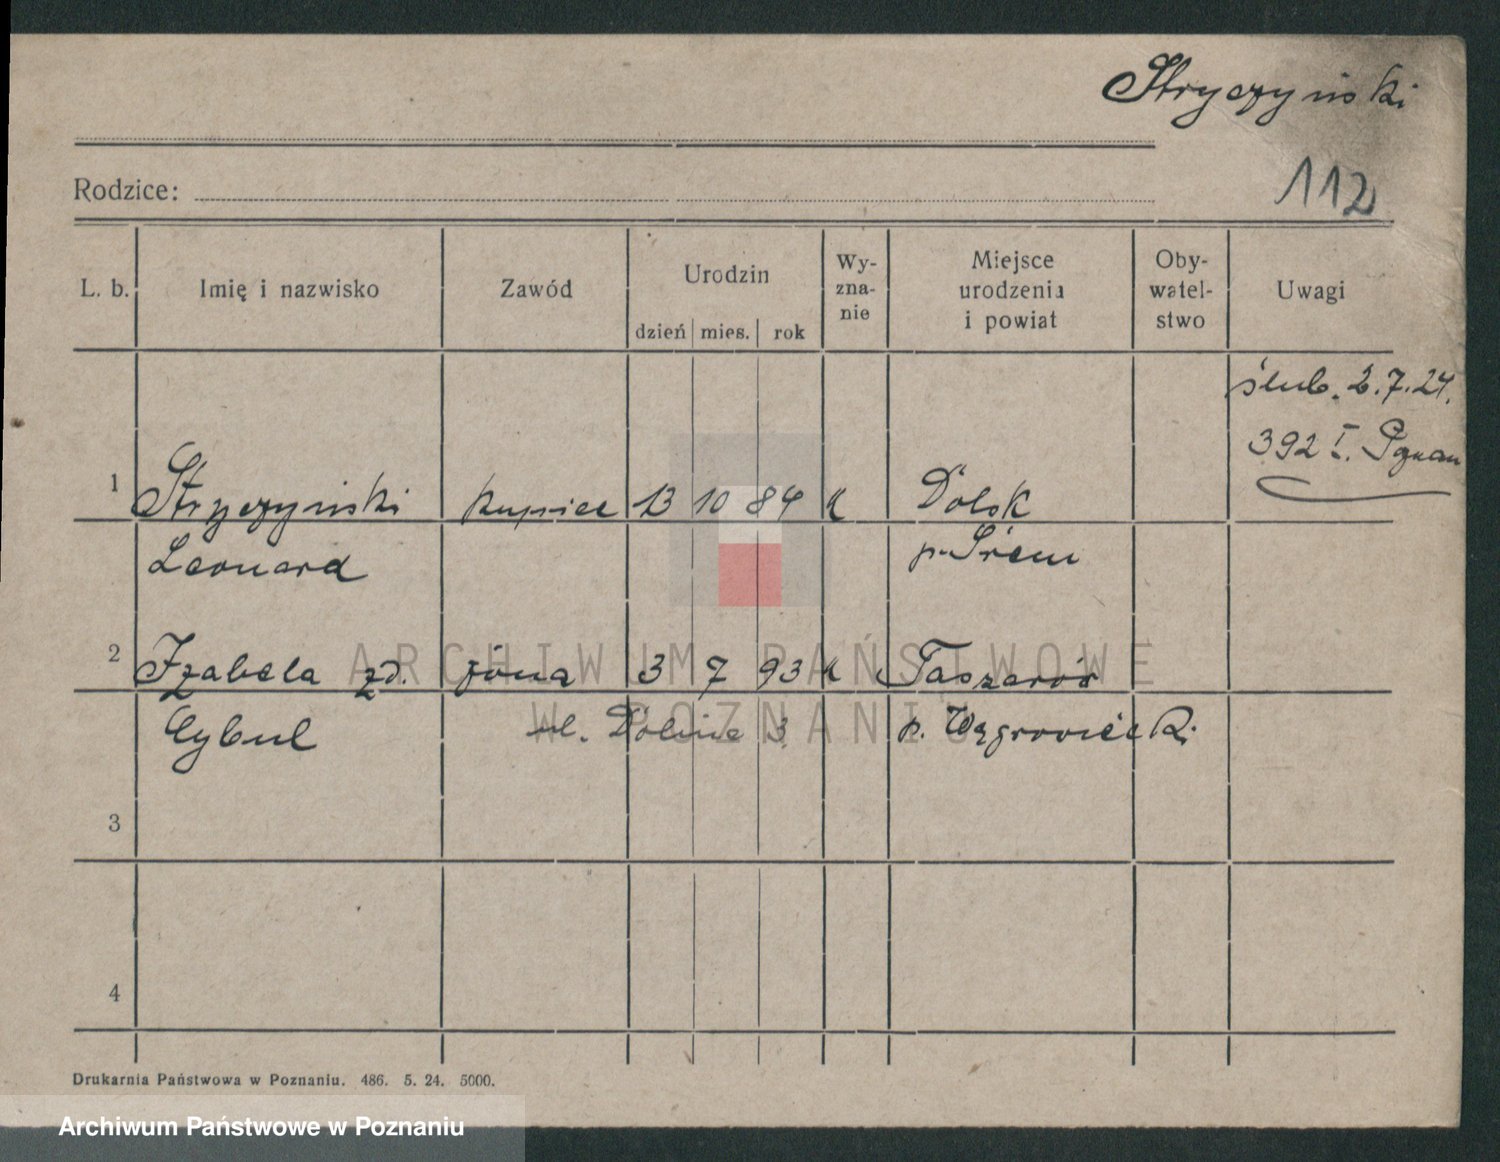 Stryczyński
112
Rodzice:
L. b.
Imię i nazwisko
Zawód
Urodzin
dzień mies. rok
Wy-
zna-
nie
Miejsce
urodzenia
i powiat
Oby-
watel-
stwo
Uwagi
ślub. 2.7.24.
392 I. Poznań
1 Stryczyński kupiec 13 10 84 k Dolsk
Leonard p. Śrem
2 Izabela zd. żona 3 7 93 k Taszarów
Cybul ul. Dolina 3 p. Wągrowiecki
3
4
ARCHIWUM PAŃSTWOWE
W POZNANIU
Drukarnia Państwowa w Poznaniu. 486. 5. 24. 5000.
Archiwum Państwowe w Poznaniu